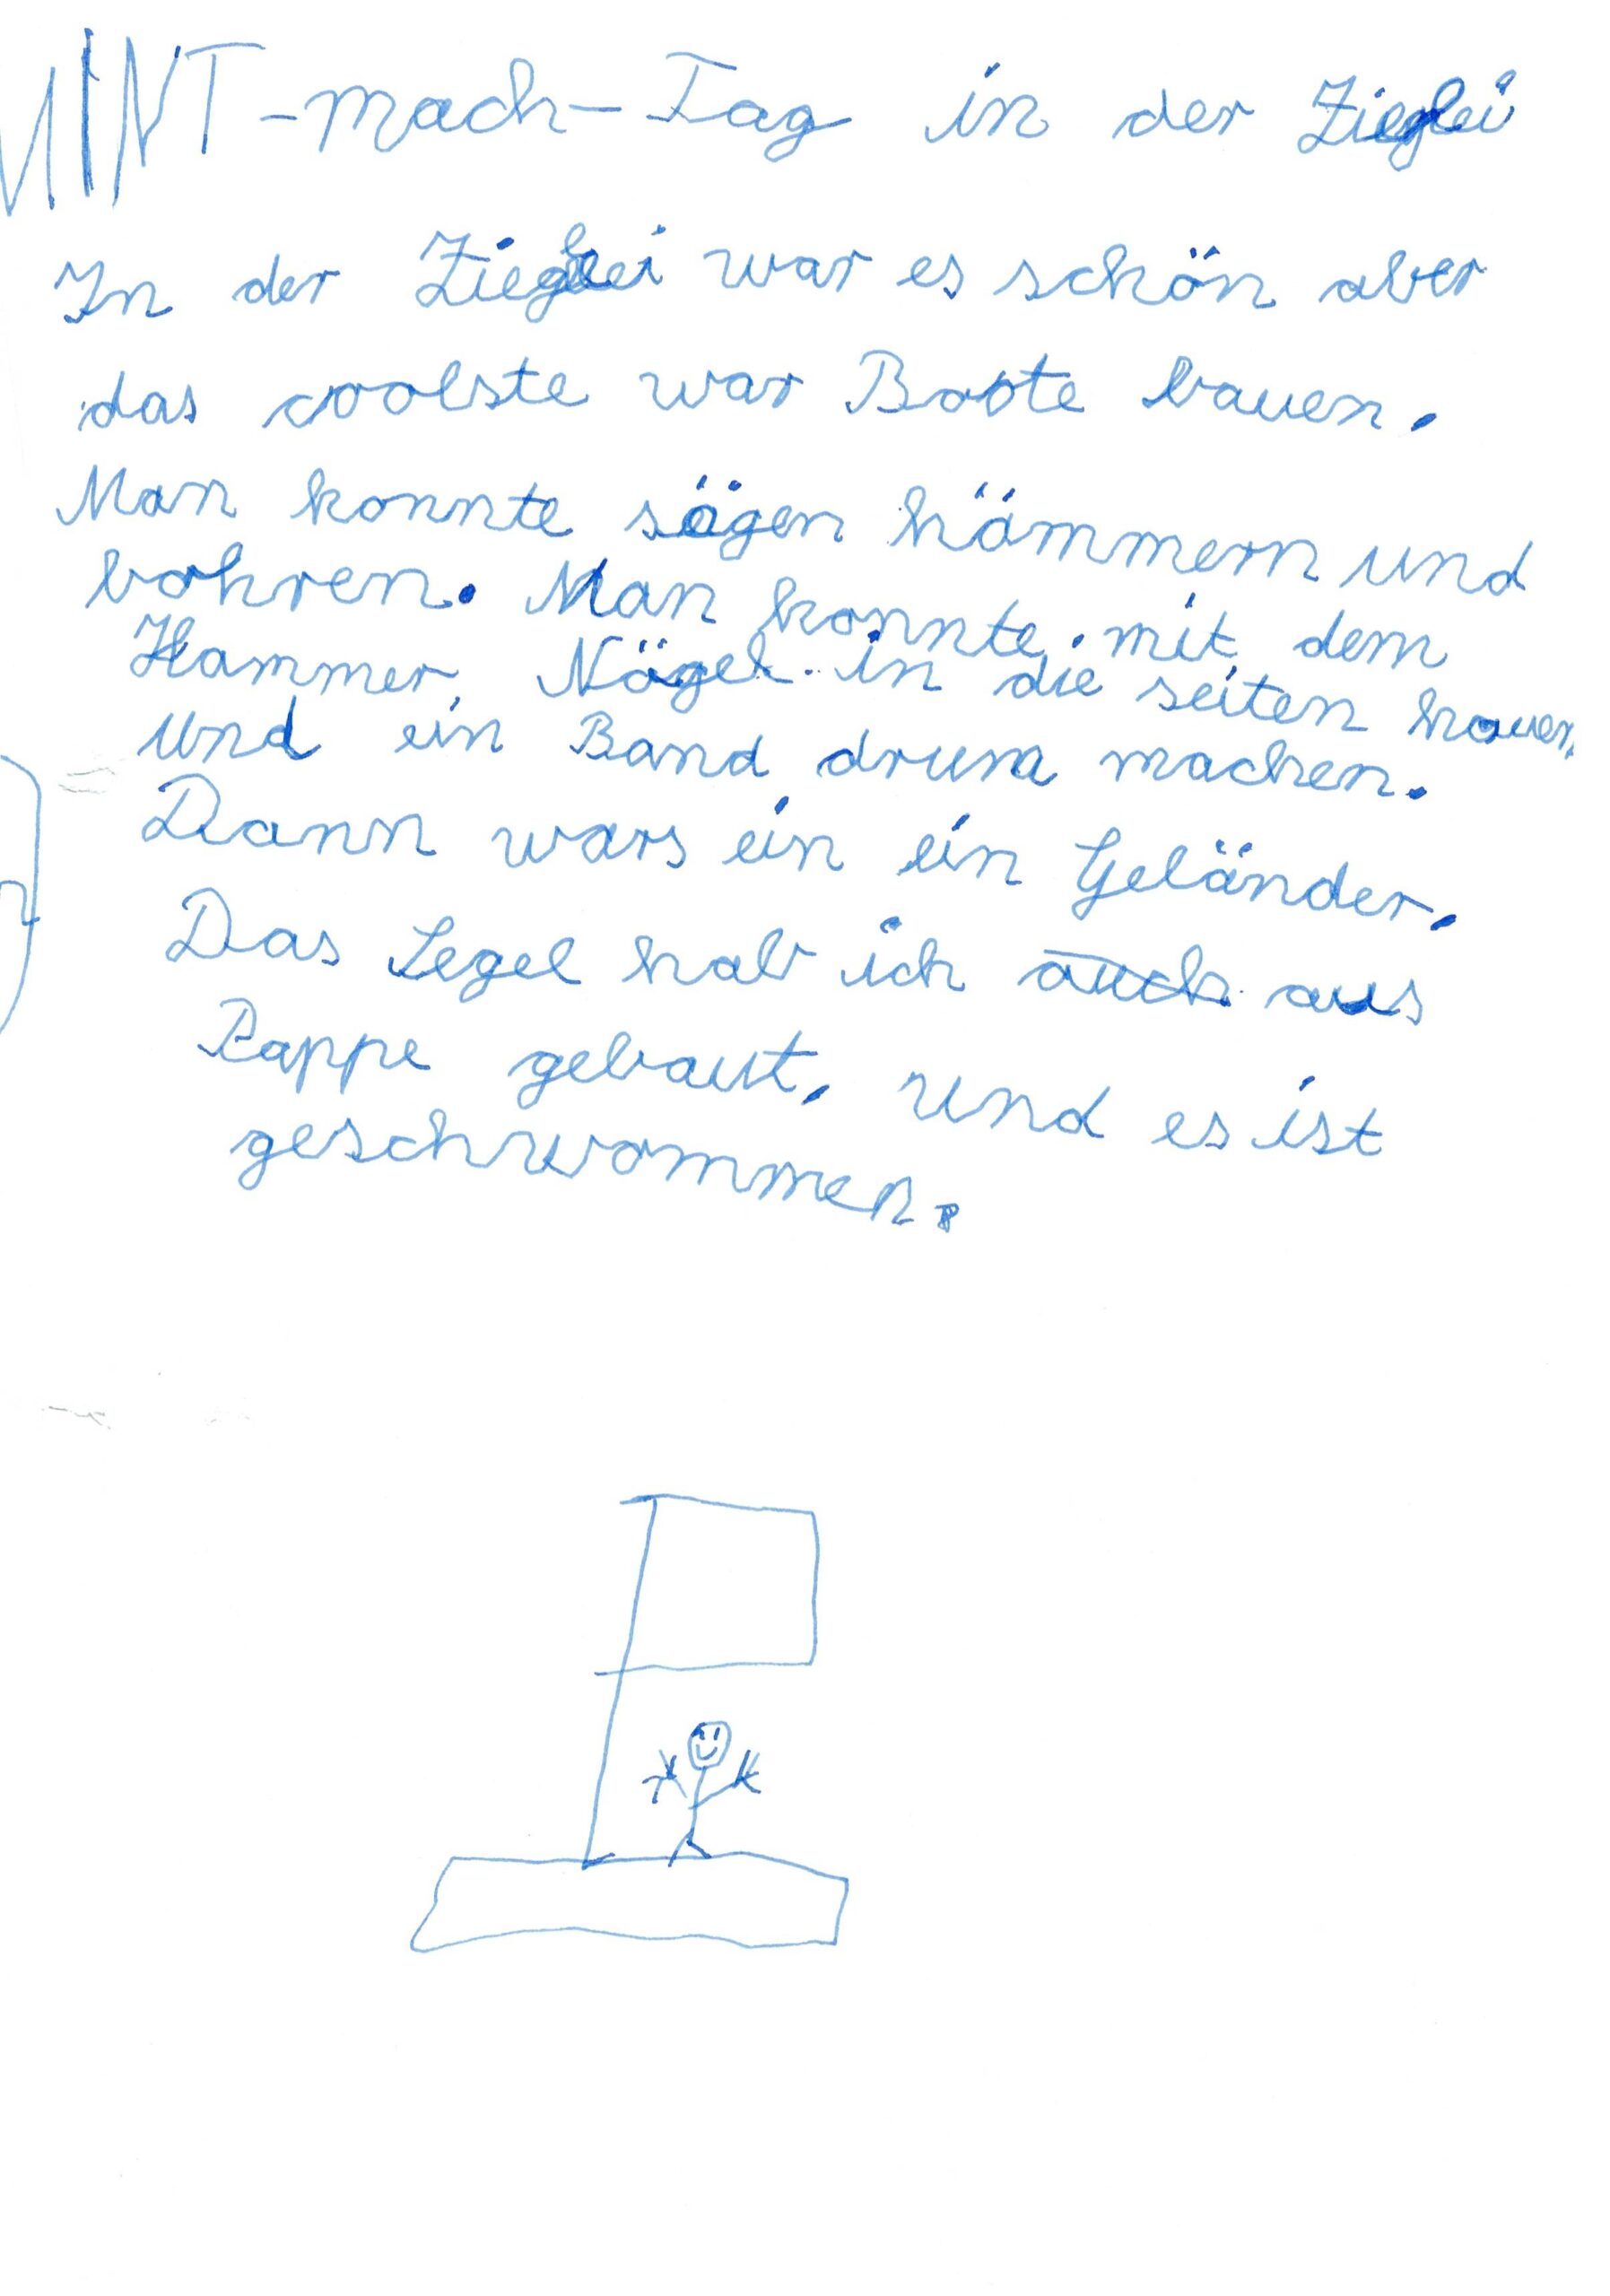 MINT-Mach-Tag in der Zieglei
In der Zieglei war es schön aber
das coolste war Boote bauen.
Man konnte sägen hämmern und
bohren. Man konnte mit dem
Hammer Nägel in die seiten hauen
und ein Band drum machen.
Dann wars ein ein Geländer.
Das Segel hab ich auch aus
Pappe gebaut, und es ist
geschwommen.